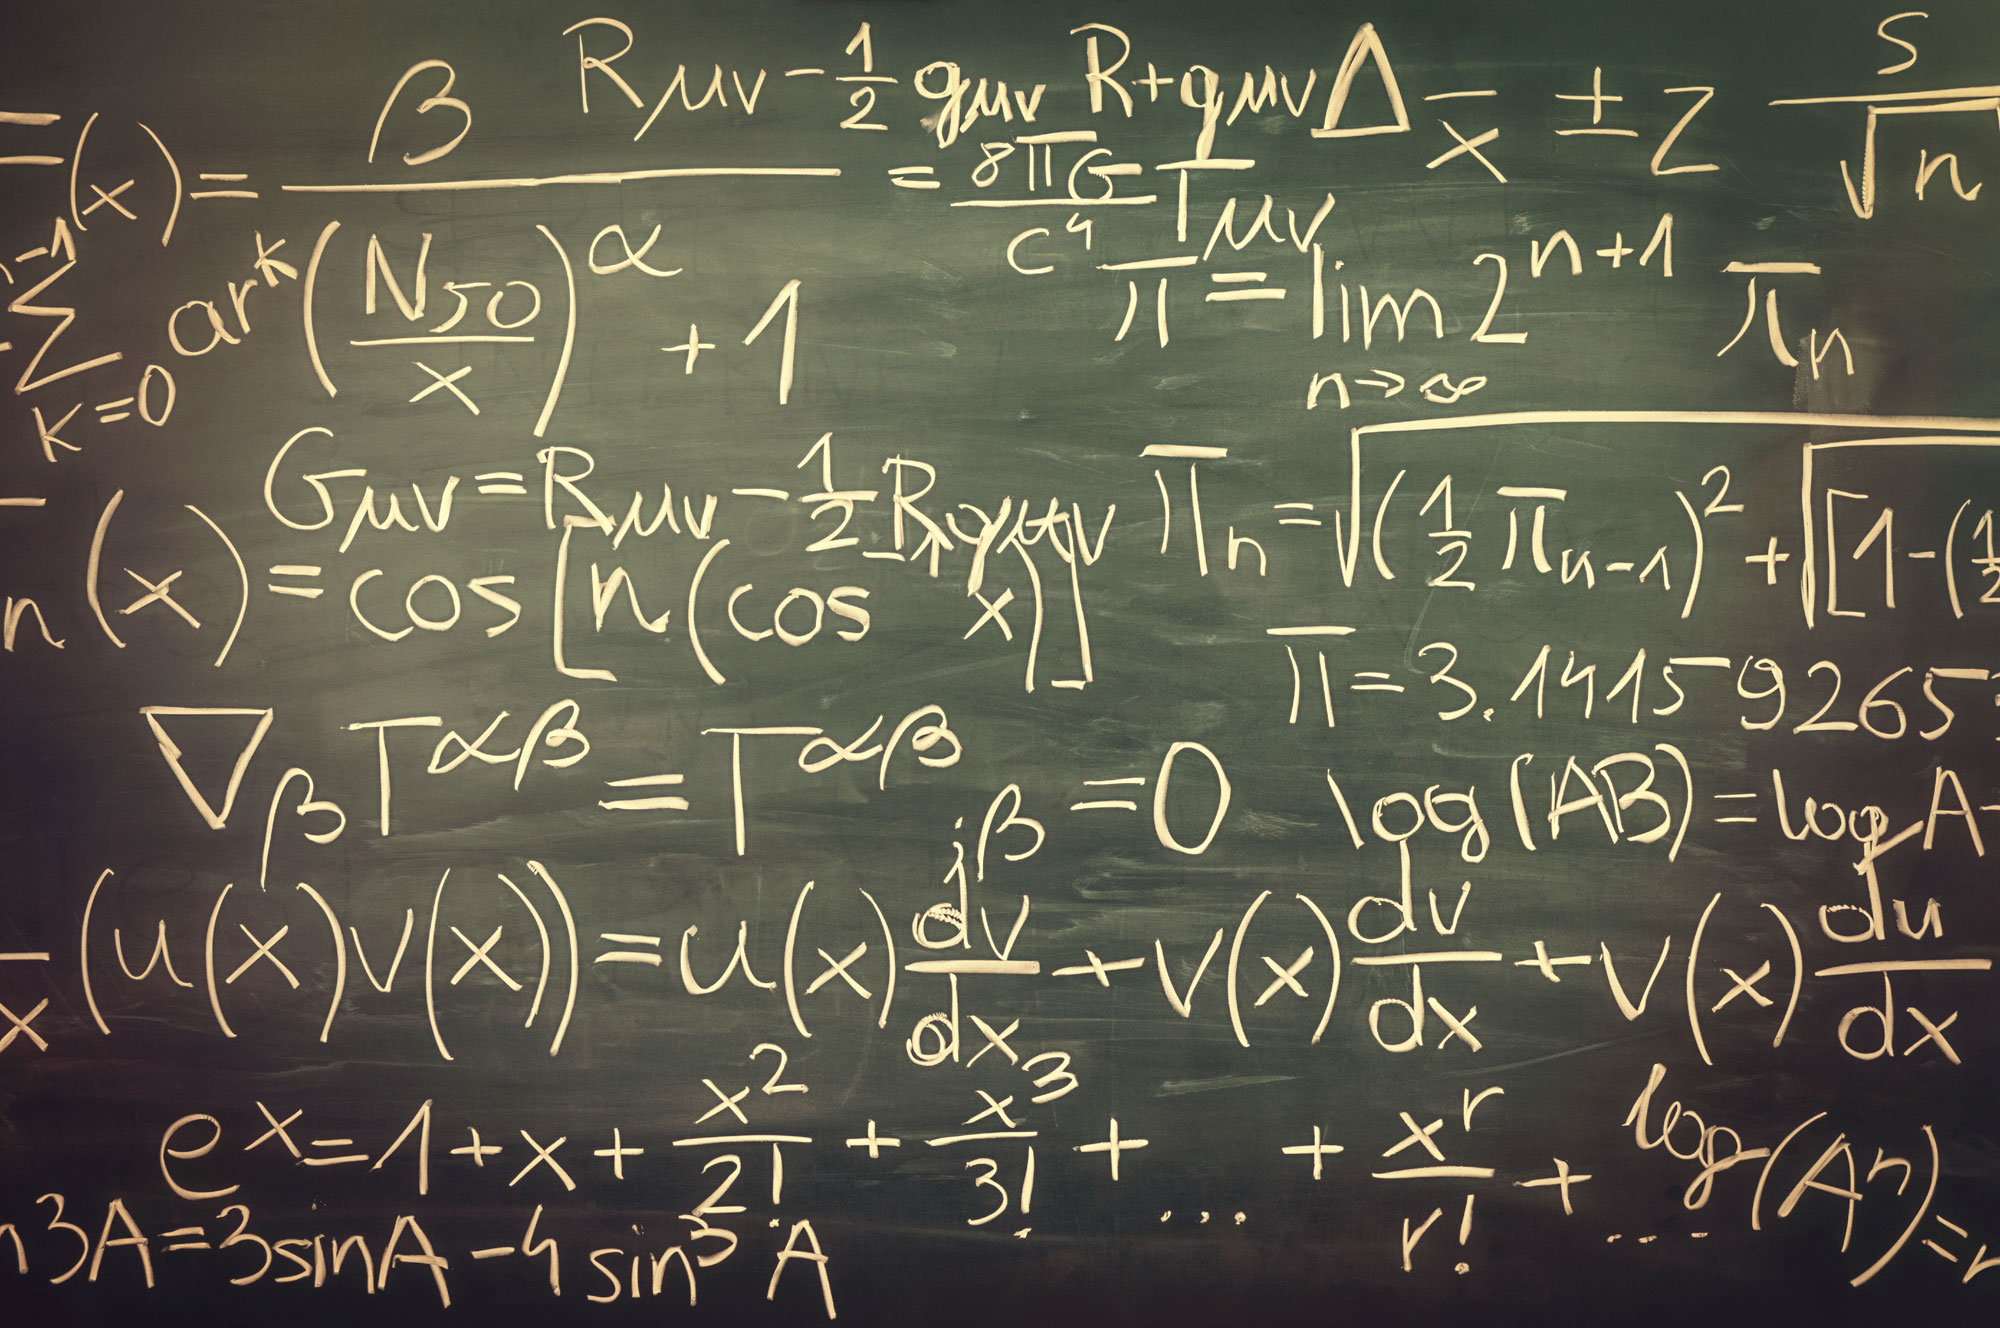 R μν - 1/2 g μν R + g μν Δ
= 8πG/c⁴ T μν
x̄ ± z s/√n
(x) = β / (N50/x)^α + 1
-1 Σ k=0 ar^k
π = lim n→∞ 2^(n+1) π_n
G μν = R μν - 1/2 R g μν
π_n = √((1/2 π_(n-1))² + √[1 - (1/2
n (x) = cos [n (cos x)]
π = 3.14159265
∇_β T^αβ = T^αβ_;β = 0
log (AB) = log A -
x (u(x) v(x)) = u(x) dv/dx + v(x) dv/dx + v(x) du/dx
e^x = 1 + x + x²/2! + x³/3! + ... + x^r/r! + ...
log (A^n) =
n3A = 3sinA - 4 sin³ A